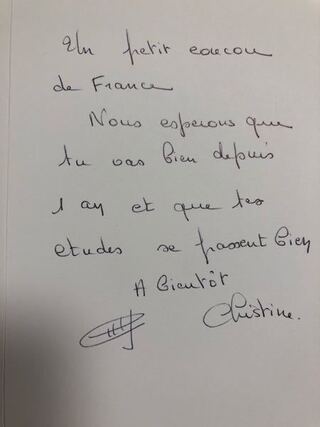 Un petit coucou
de France
Nous esperons que
tu vas bien depuis
1 an et que tes
etudes se passent bien
A bientôt
Christine.